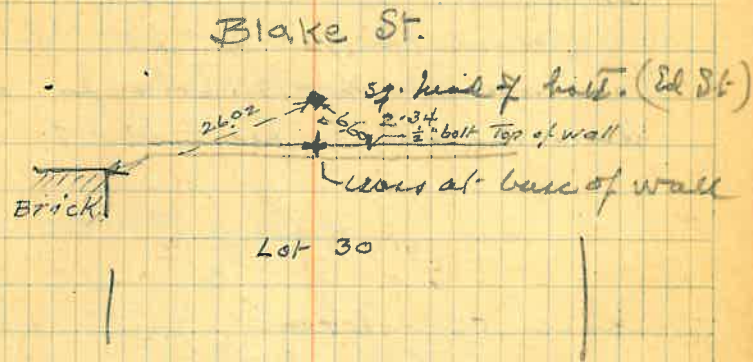 Blake St.
sq. head of bolt. (Ed St)
26.02
6.00
2.34
½" bolt Top of wall
Cross at base of wall
Brick
Lot 30